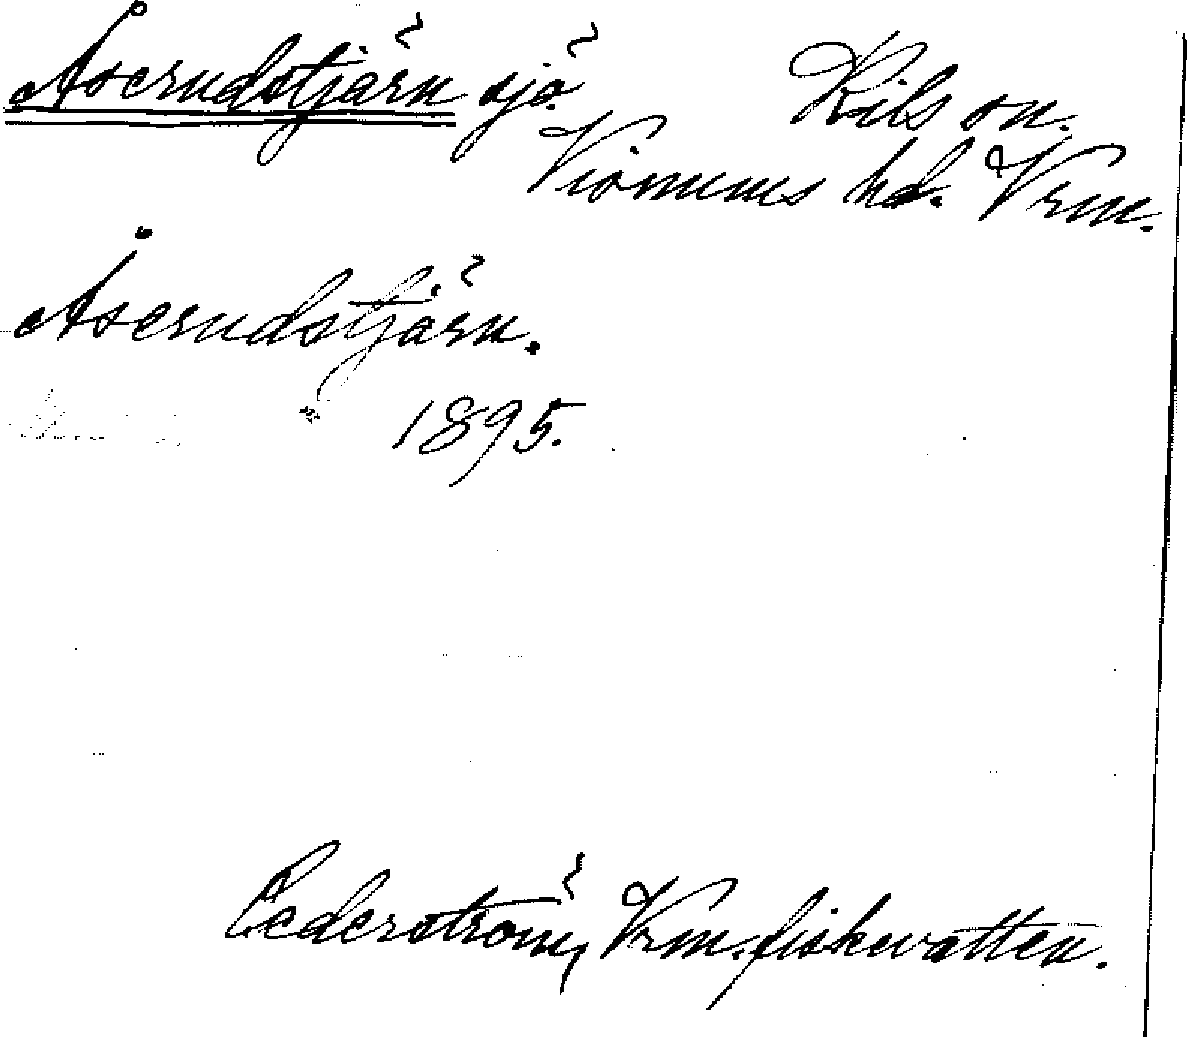 Åserudstjärn sjö. Kils sn.
Visnums hd. Vrm.
Åserudstjärn.
1895.
Cederström, Vrm. fiskevatten.